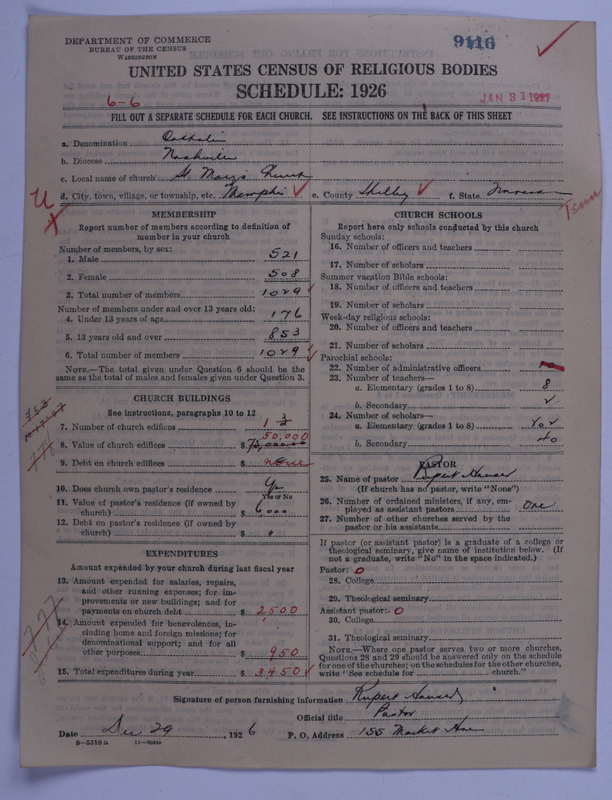 DEPARTMENT OF COMMERCE
BUREAU OF THE CENSUS
WASHINGTON
9116
UNITED STATES CENSUS OF RELIGIOUS BODIES
SCHEDULE: 1926
6-6
JAN 31 1927
FILL OUT A SEPARATE SCHEDULE FOR EACH CHURCH. SEE INSTRUCTIONS ON THE BACK OF THIS SHEET
a. Denomination Catholic
b. Diocese Nashville
c. Local name of church St. Mary's Church
d. City, town, village, or township, etc. Memphis e. County Shelby f. State Tennessee
U
Tenn
MEMBERSHIP
Report number of members according to definition of
member in your church
Number of members, by sex:
1. Male 521
2. Female 508
3. Total number of members 1029
Number of members under and over 13 years old:
4. Under 13 years of age 176
5. 13 years old and over 853
6. Total number of members 1029
NOTE.—The total given under Question 6 should be
the same as the total of males and females given under Question 3.
CHURCH BUILDINGS
See instructions, paragraphs 10 to 12
7. Number of church edifices 1
50,000
8. Value of church edifices $
9. Debt on church edifices $ none
10. Does church own pastor's residence
Yes or No
11. Value of pastor's residence (if owned by
church) $ 6000
12. Debt on pastor's residence (if owned by
church) $
EXPENDITURES
Amount expended by your church during last fiscal year
13. Amount expended for salaries, repairs,
and other running expenses; for im-
provements or new buildings; and for
payments on church debt $ 2,500
14. Amount expended for benevolences, in-
cluding home and foreign missions; for
denominational support; and for all
other purposes $ 950
15. Total expenditures during year $ 3450
CHURCH SCHOOLS
Report here only schools conducted by this church
Sunday schools:
16. Number of officers and teachers
17. Number of scholars
Summer vacation Bible schools:
18. Number of officers and teachers
19. Number of scholars
Week-day religious schools:
20. Number of officers and teachers
21. Number of scholars
Parochial schools:
22. Number of administrative officers
23. Number of teachers—
a. Elementary (grades 1 to 8) 8
b. Secondary
24. Number of scholars—
a. Elementary (grades 1 to 8)
b. Secondary 40
PASTOR
25. Name of pastor Rupert Hauser
(If church has no pastor, write "None")
26. Number of ordained ministers, if any, em-
ployed as assistant pastors One
27. Number of other churches served by the
pastor or his assistants
If pastor (or assistant pastor) is a graduate of a college or
theological seminary, give name of institution below. (If
not a graduate, write "No" in the space indicated.)
Pastor: 0
28. College
29. Theological seminary
Assistant pastor: 0
30. College
31. Theological seminary
NOTE.—Where one pastor serves two or more churches,
Questions 28 and 29 should be answered only on the schedule
for one of the churches; on the schedules for the other churches,
write "See schedule for church."
Signature of person furnishing information Rupert Hauser
Official title Pastor
Date Dec 29, 1926 P. O. Address 155 Market Ave
8—5318a 11—9664a